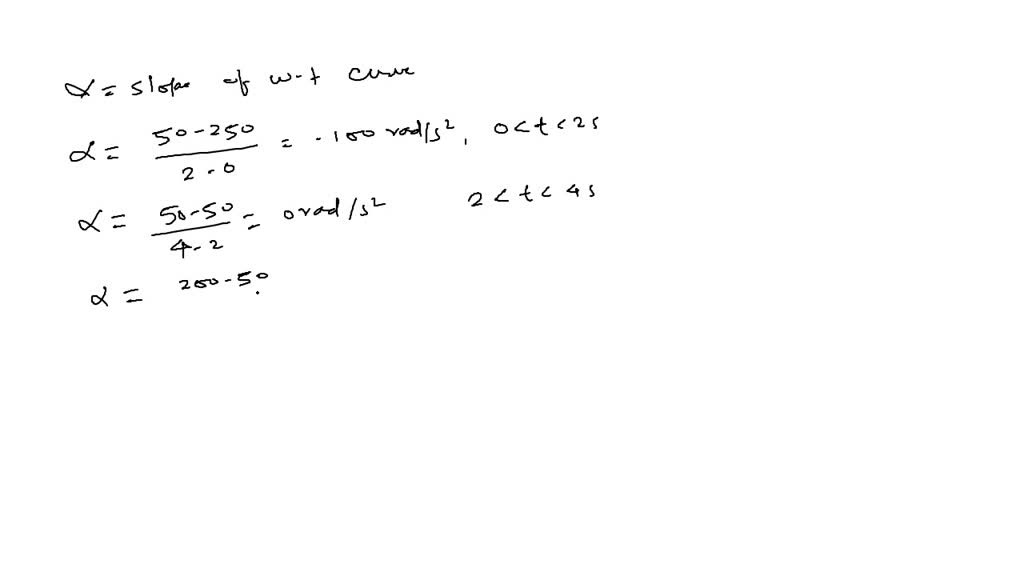 α = slope of w-t curve
α = (50-250)/(2-0) = -100 rad/s², 0<t<2s
α = (50-50)/(4-2) = 0 rad/s² 2<t<4s
α = 200-50